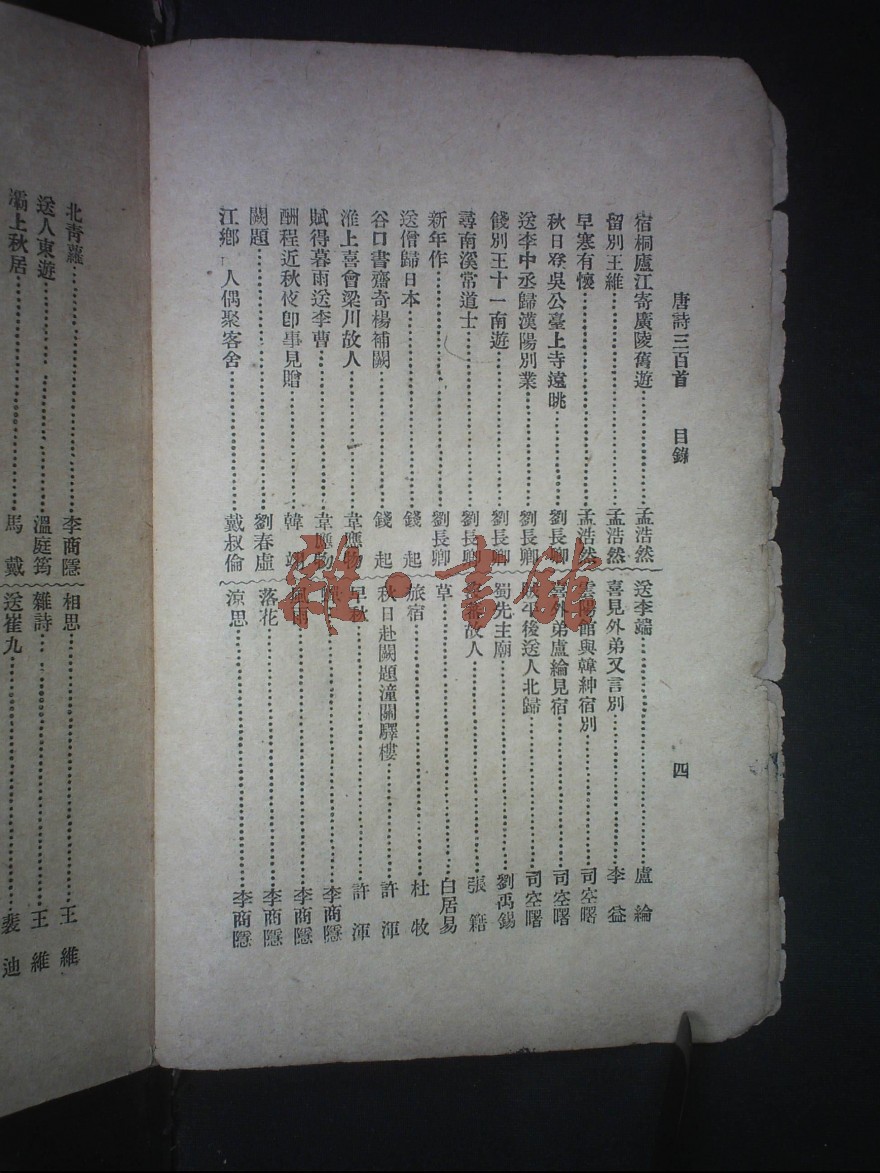 唐詩三百首 目錄 四
宿桐廬江寄廣陵舊遊……孟浩然
留別王維……孟浩然
早寒有懷……孟浩然
秋日登吳公臺上寺遠眺……劉長卿
送李中丞歸漢陽別業……劉長卿
餞別王十一南遊……劉長卿
尋南溪常道士……劉長卿
新年作……劉長卿
送僧歸日本……錢起
谷口書齋寄楊補闕……錢起
淮上喜會梁川故人……韋應物
賦得暮雨送李曹……韋應物
酬程近秋夜卽事見贈……韓翃
闕題……劉春虛
江鄉 人偶聚客舍……戴叔倫
送李端……盧綸
喜見外弟又言別……李益
雲陽館與韓紳宿別……司空曙
喜外弟盧綸見宿……司空曙
平後送人北歸……司空曙
蜀先生廟……劉禹錫
故人……張籍
草……白居易
旅宿……杜牧
秋日赴闕題潼關驛樓……許渾
早秋……許渾
李商隱
風雨……李商隱
落花……李商隱
涼思……李商隱
北青蘿……李商隱
送人東遊……溫庭筠
灞上秋居……馬戴
相思……王維
雜詩……王維
送崔九……裴迪
雜·書館